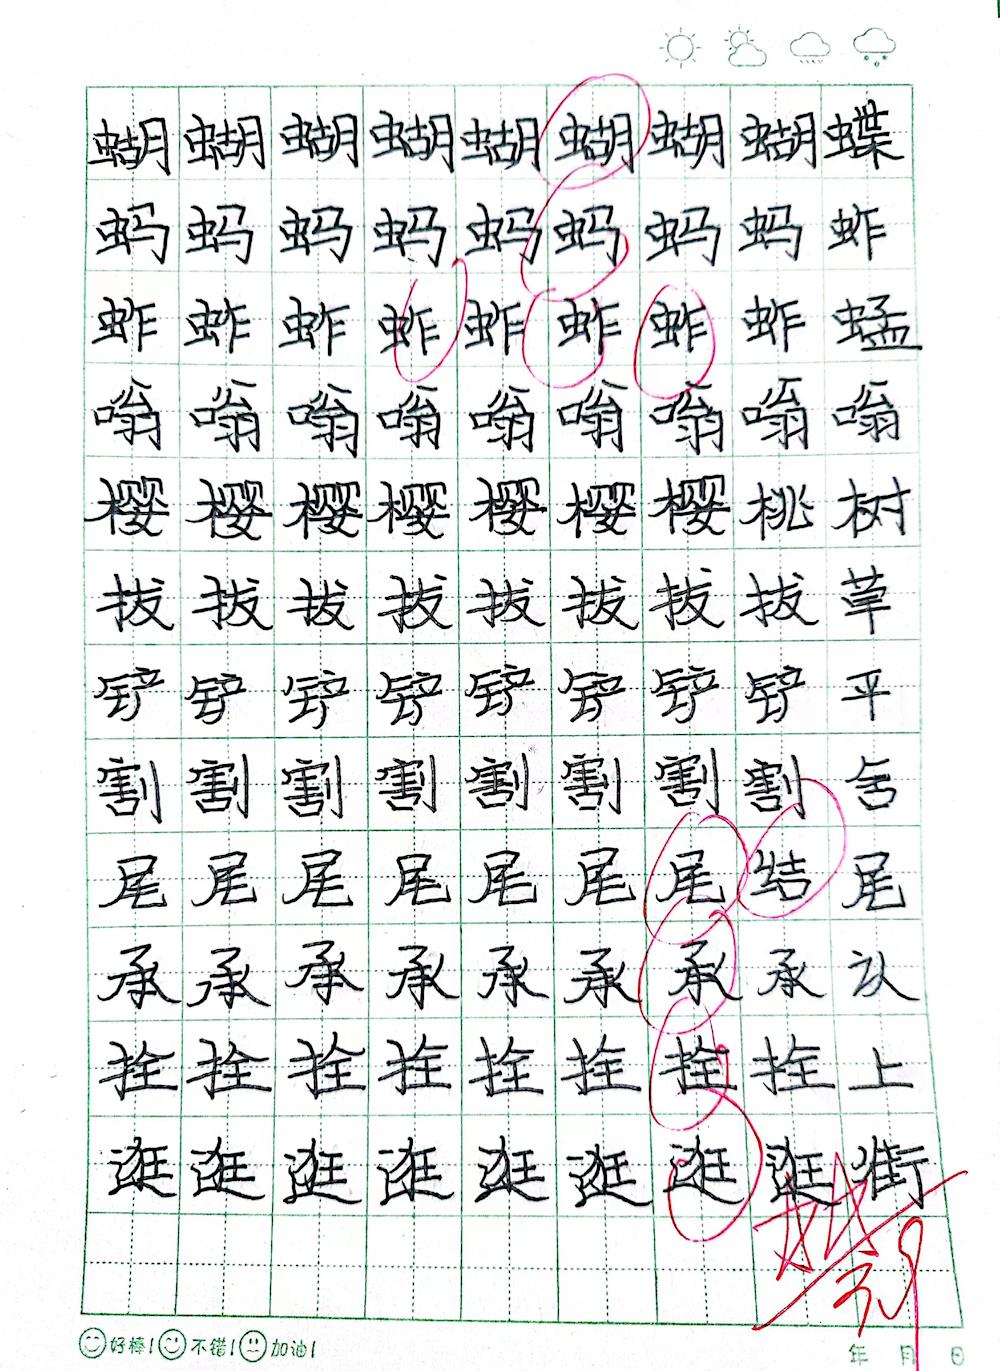 蝴蝴蝴蝴蝴蝴蝴蝴蝶
蚂蚂蚂蚂蚂蚂蚂蚂蚱
蚱蚱蚱蚱蚱蚱蚱蚱蜢
嗡嗡嗡嗡嗡嗡嗡嗡嗡
樱樱樱樱樱樱樱桃树
拔拔拔拔拔拔拔拔草
铲铲铲铲铲铲铲铲平
割割割割割割割割舍
尾尾尾尾尾尾尾结尾
承承承承承承承承认
拴拴拴拴拴拴拴拴上
逛逛逛逛逛逛逛逛街
好棒! 不错! 加油! 年 月 日